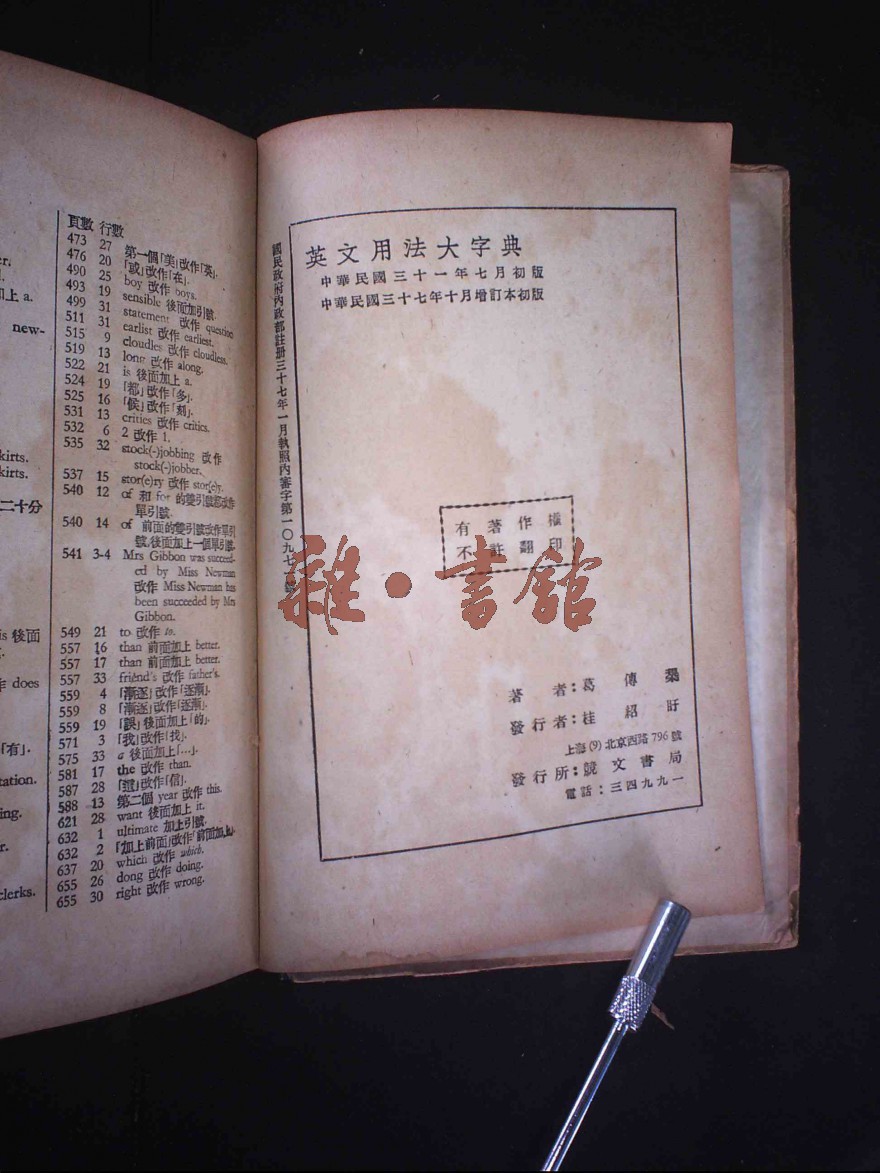 er.
l.
加上 a.
new-
kirts.
kirts.
二十分
is 後面
作 does
「有」.
tation.
ing.
r.
clerks.
頁數 行數
473 27 第一個「美」改作「英」.
476 20 「或」改作「在」.
490 25 boy 改作 boys.
493 19 sensible 後面加引號.
499 31 statement 改作 question
511 31 earlist 改作 earliest.
515 9 cloudles 改作 cloudless.
519 13 long 改作 along.
522 21 is 後面加上 a.
524 19 「都」改作「多」.
525 16 「候」改作「刻」.
531 13 crities 改作 critics.
532 6 2 改作 1.
535 32 stock(-)jobbing 改作
stock(-)jobber.
537 15 stor(e)ry 改作 stor(e)y.
540 12 of 和 for 的雙引號都改作
單引號.
540 14 of 前面的雙引號改作單引
號,後面加上一個單引號.
541 3-4 Mrs Gibbon was succeed-
ed by Miss Newman
改作 Miss Newman has
been succeeded by Mrs
Gibbon.
549 21 to 改作 to.
557 16 than 前面加上 better.
557 17 than 前面加上 better.
557 33 friend's 改作 father's.
559 4 「漸逐」改作「逐漸」.
559 8 「漸逐」改作「逐漸」.
559 19 「誤」後面加上「的」.
571 3 「我」改作「找」.
575 33 a 後面加上「...」.
581 17 the 改作 than.
587 28 「這」改作「信」.
588 13 第二個 year 改作 this.
621 28 want 後面加上 it.
632 1 ultimate 加上引號.
632 2 「加上前面」改作「前面加上」.
637 20 which 改作 which.
655 26 dong 改作 doing.
655 30 right 改作 wrong.
國民政府內政部註册三十七年一月執照內審字第一〇九七一號
英文用法大字典
中華民國三十一年七月初版
中華民國三十七年十月增訂本初版
有著作權
不許翻印
雜·書館
著者:葛傳槼
發行者:桂紹盱
上海(9)北京西路796號
發行所:競文書局
電話:三四九九一